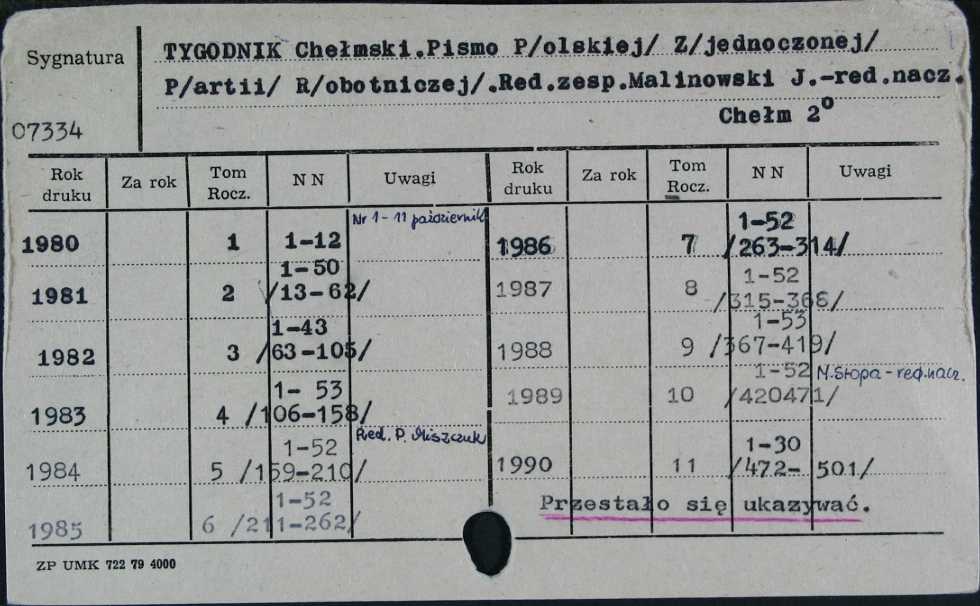 Sygnatura
TYGODNIK Chełmski.Pismo P/olskiej/ Z/jednoczonej/
P/artii/ R/obotniczej/.Red.zesp.Malinowski J.-red.nacz.
07334
Chełm 2°
Rok druku Za rok Tom Rocz. NN Uwagi Rok druku Za rok Tom Rocz. NN Uwagi
Nr 1-11 październik
1980 1 1-12
1-50
1981 2 /13-62/
1-43
1982 3 /63-105/
1- 53
1983 4 /106-158/
Red. P. Miszczuk
1-52
1984 5 /159-210/
1-52
1985 6 /211-262/
1-52
1986 7 /263-314/
1-52
1987 8 /315-366/
1-53
1988 9 /367-419/
1-52 M.Stopa-red.nacz.
1989 10 /420471/
1-30
1990 11 /472- 501/
Przestało się ukazywać.
ZP UMK 722 79 4000